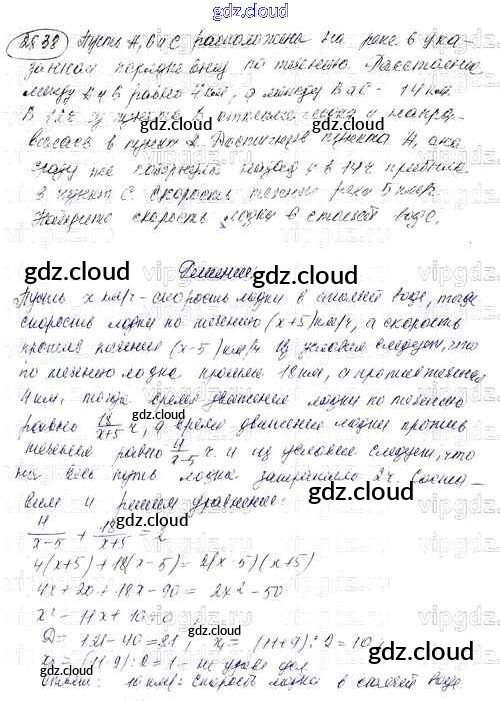 gdz.cloud
28.38 Пусть А, В и С расположены на реке в ука-
занном порядке вниз по течению. Расстояние
между А и В равно 4 км, а между В и С - 14 км.
В 12 ч из пункта В отплыла лодка и напра-
вилась в пункт А. Достигнув пункта А, она
сразу же повернула назад и в 14 ч прибыла
в пункт С. Скорость течения реки 5 км/ч.
Найдите скорость лодки в стоячей воде.
gdz.cloud Решение gdz.cloud
Пусть x км/ч - скорость лодки в стоячей воде, тогда
скорость лодки по течению (x+5) км/ч, а скорость
против течения (x-5) км/ч. Из условия следует, что
по течению лодка прошла 18 км, а против течения
4 км, тогда время движения лодки по течению
равно 18/x+5 ч, а время движения лодки против
течения равно 4/x-5 ч. и из условия следует, что
на весь путь лодка затратила 2 ч. Соста-
вим и решим уравнение:
4/x-5 + 18/x+5 = 2
gdz.cloud gdz.cloud
4(x+5) + 18(x-5) = 2(x-5)(x+5)
4x + 20 + 18x - 90 = 2x² - 50
x² - 11x + 10 = 0
D = 121 - 40 = 81; x₁ = (11+9):2 = 10
x₂ = (11-9):2 = 1 - не удов. усл.
gdz.cloud gdz.cloud
Ответ: 10 км/ч скорость лодки в стоячей воде.